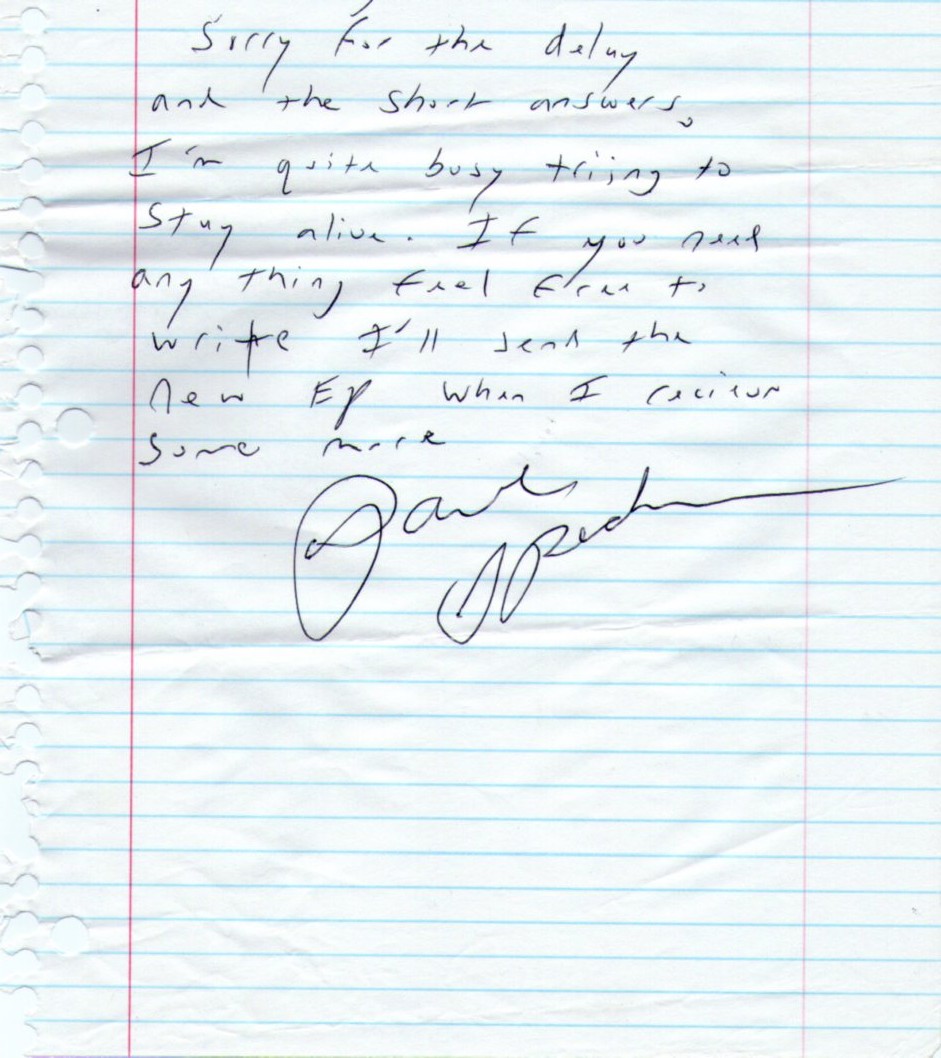 Sorry for the delay
and the short answers.
I'm quite busy triing to
stay alive. If you need
any thing feel free to
write I'll send the
new EP when I recieve
some more
Paul